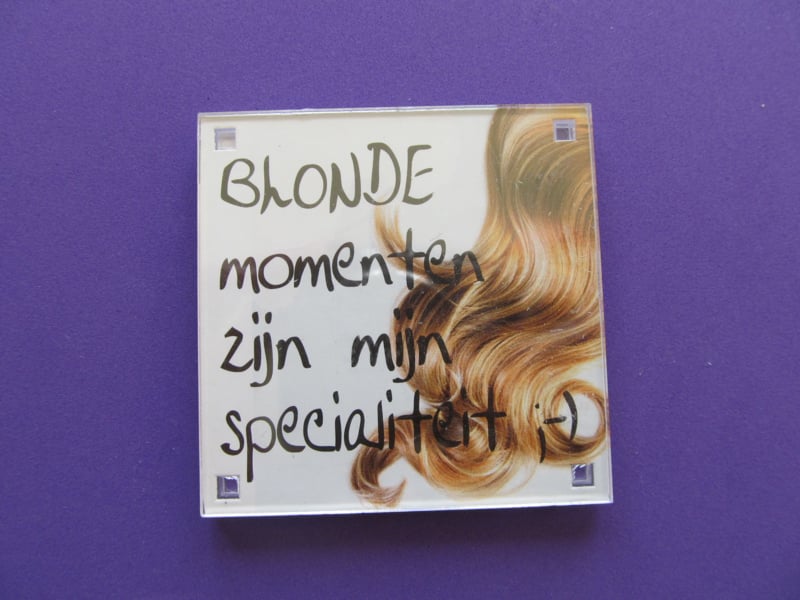 BLONDE
momenten
zijn mijn
specialiteit ;-)